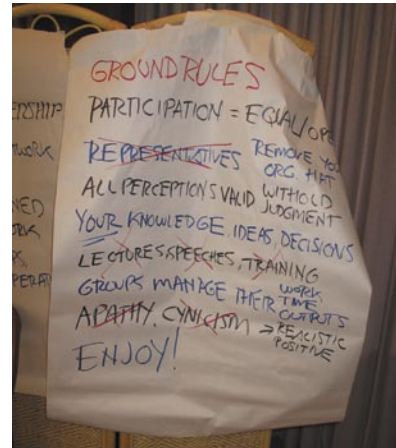 GROUND RULES
PARTICIPATION = EQUAL/OPE
REPRESENTATIVES REMOVE YOU
ORG. HAT
ALL PERCEPTIONS VALID WITHOLD
JUDGMENT
YOUR KNOWLEDGE, IDEAS, DECISIONS
LECTURES, SPEECHES, TRAINING
GROUPS MANAGE THEIR WORK
TIME
OUTPUTS
APATHY, CYNICISM → REALISTIC
POSITIVE
ENJOY!
ERSHIP
WORK
NED
ORK
PERAT